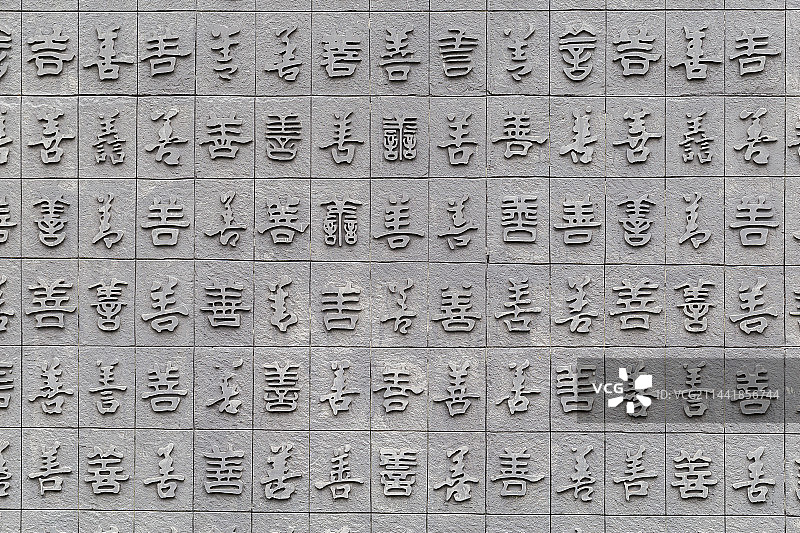 善善善善善善善善善善善善善
善善善善善善善善善善善善善
善善善善善善善善善善善善善
善善善善善善善善善善善善善
善善善善善善善善善善善善善
善善善善善善善善善善善善善
VCG VCG41441856744